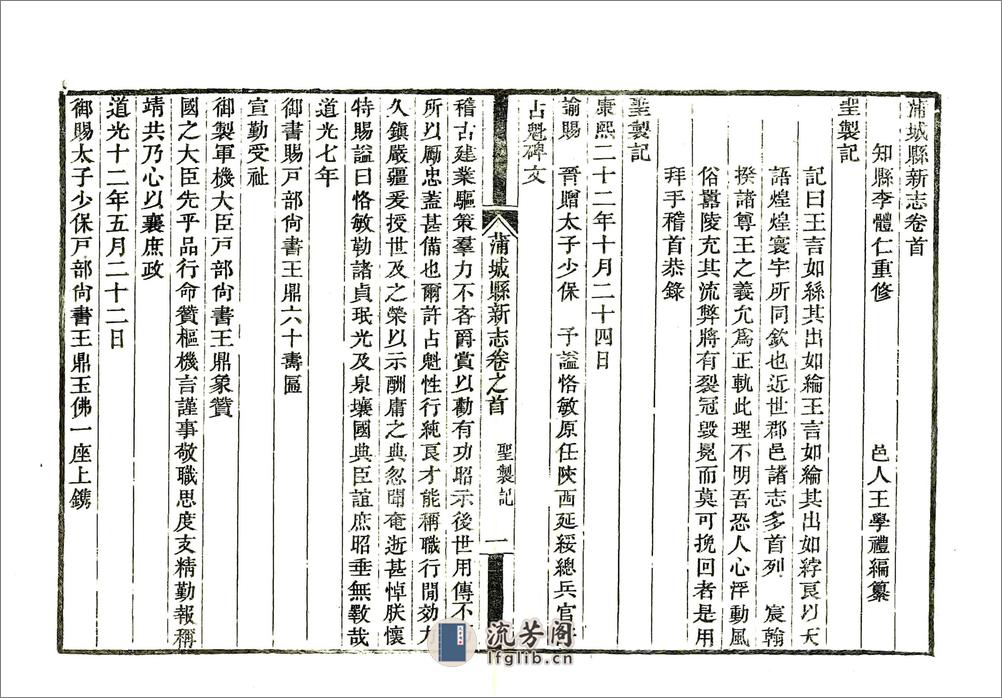 蒲城縣新志卷首
知縣李體仁重修 邑人王學禮編纂
聖製記
記曰王言如絲其出如綸王言如綸其出如綍良以天
語煌煌寰宇所同欽也近世郡邑諸志多首列 宸翰
揆諸尊王之義允爲正軌此理不明吾恐人心浮動風
俗囂陵充其流弊將有裂冠毀冕而莫可挽回者是用
拜手稽首恭錄
聖製記
康熙二十二年十月二十四日
諭賜 晉贈太子少保 予諡恪敏原任陝西延綏總兵官許
占魁碑文
蒲城縣新志卷之首 聖製記 一
稽古建業驅策羣力不吝爵賞以勸有功昭示後世用傳不
所以勵忠蓋甚備也爾許占魁性行純良才能稱職行間効力
久鎮嚴疆爰授世及之榮以示酬庸之典忽聞奄逝甚悼朕懷
特賜諡曰恪敏勒諸貞珉光及泉壤國典臣誼庶昭垂無斁哉
道光七年
御書賜戸部尙書王鼎六十壽匾
宣勤受祉
御製軍機大臣戸部尙書王鼎象贊
國之大臣先乎品行命贊樞機言謹事敬職思度支精勤報稱
靖共乃心以襄庶政
道光十二年五月二十二日
御賜太子少保戸部尙書王鼎玉佛一座上鐫
流芳阁
lfglib.cn